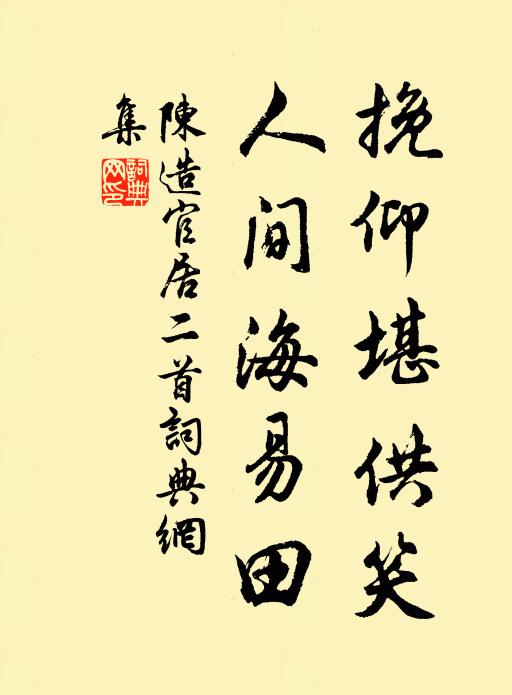 挽仰堪供笑
人间海易田
陳造官居二首詞典網
集
詞典網印